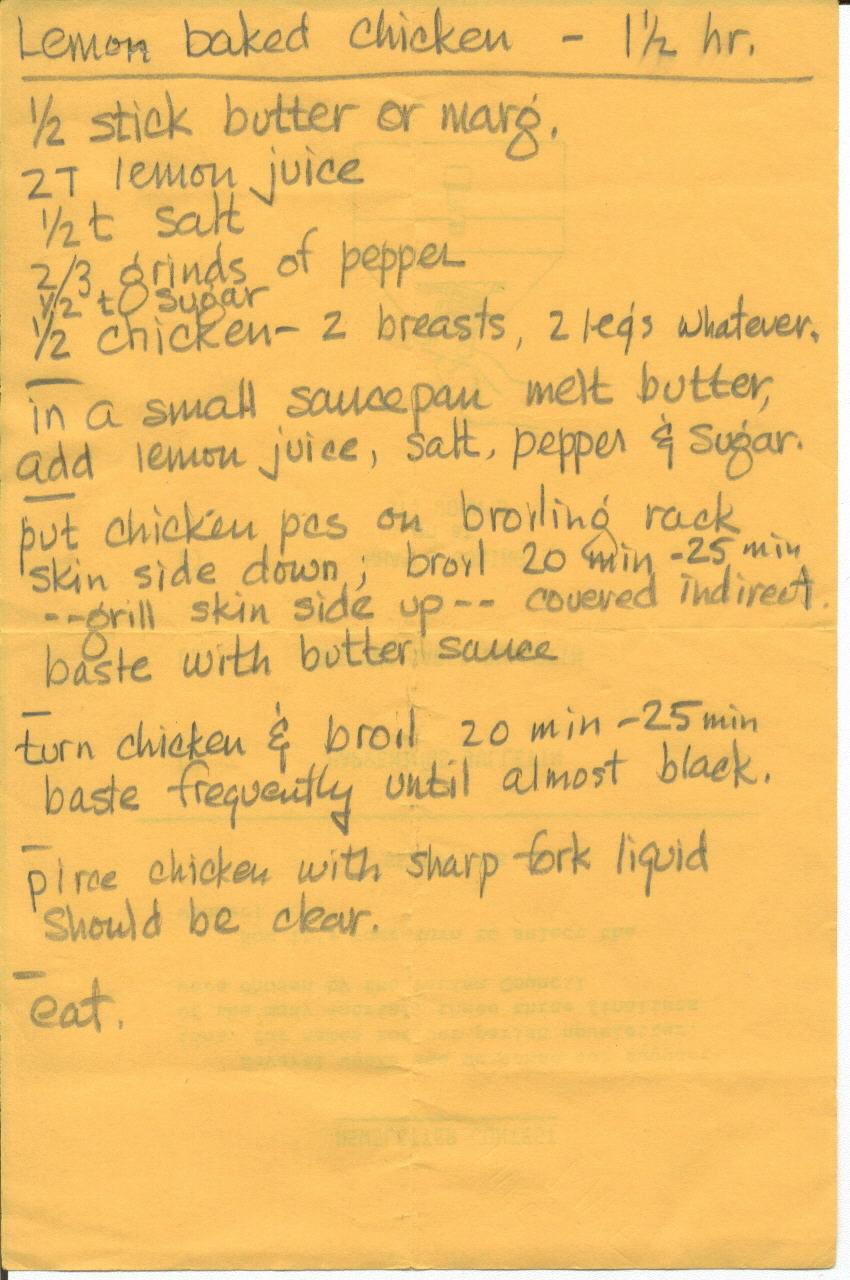 Lemon baked chicken - 1½ hr.
½ stick butter or marg.
2T lemon juice
½ t salt
2/3 grinds of pepper
½ t sugar
½ chicken- 2 breasts, 2 legs whatever.
in a small saucepan melt butter,
add lemon juice, salt, pepper & sugar.
put chicken pcs on broiling rack
skin side down; broil 20 min -25 min
--grill skin side up-- covered indirect.
baste with butter sauce
turn chicken & broil 20 min -25 min
baste frequently until almost black.
pirce chicken with sharp fork liquid
should be clear.
eat.